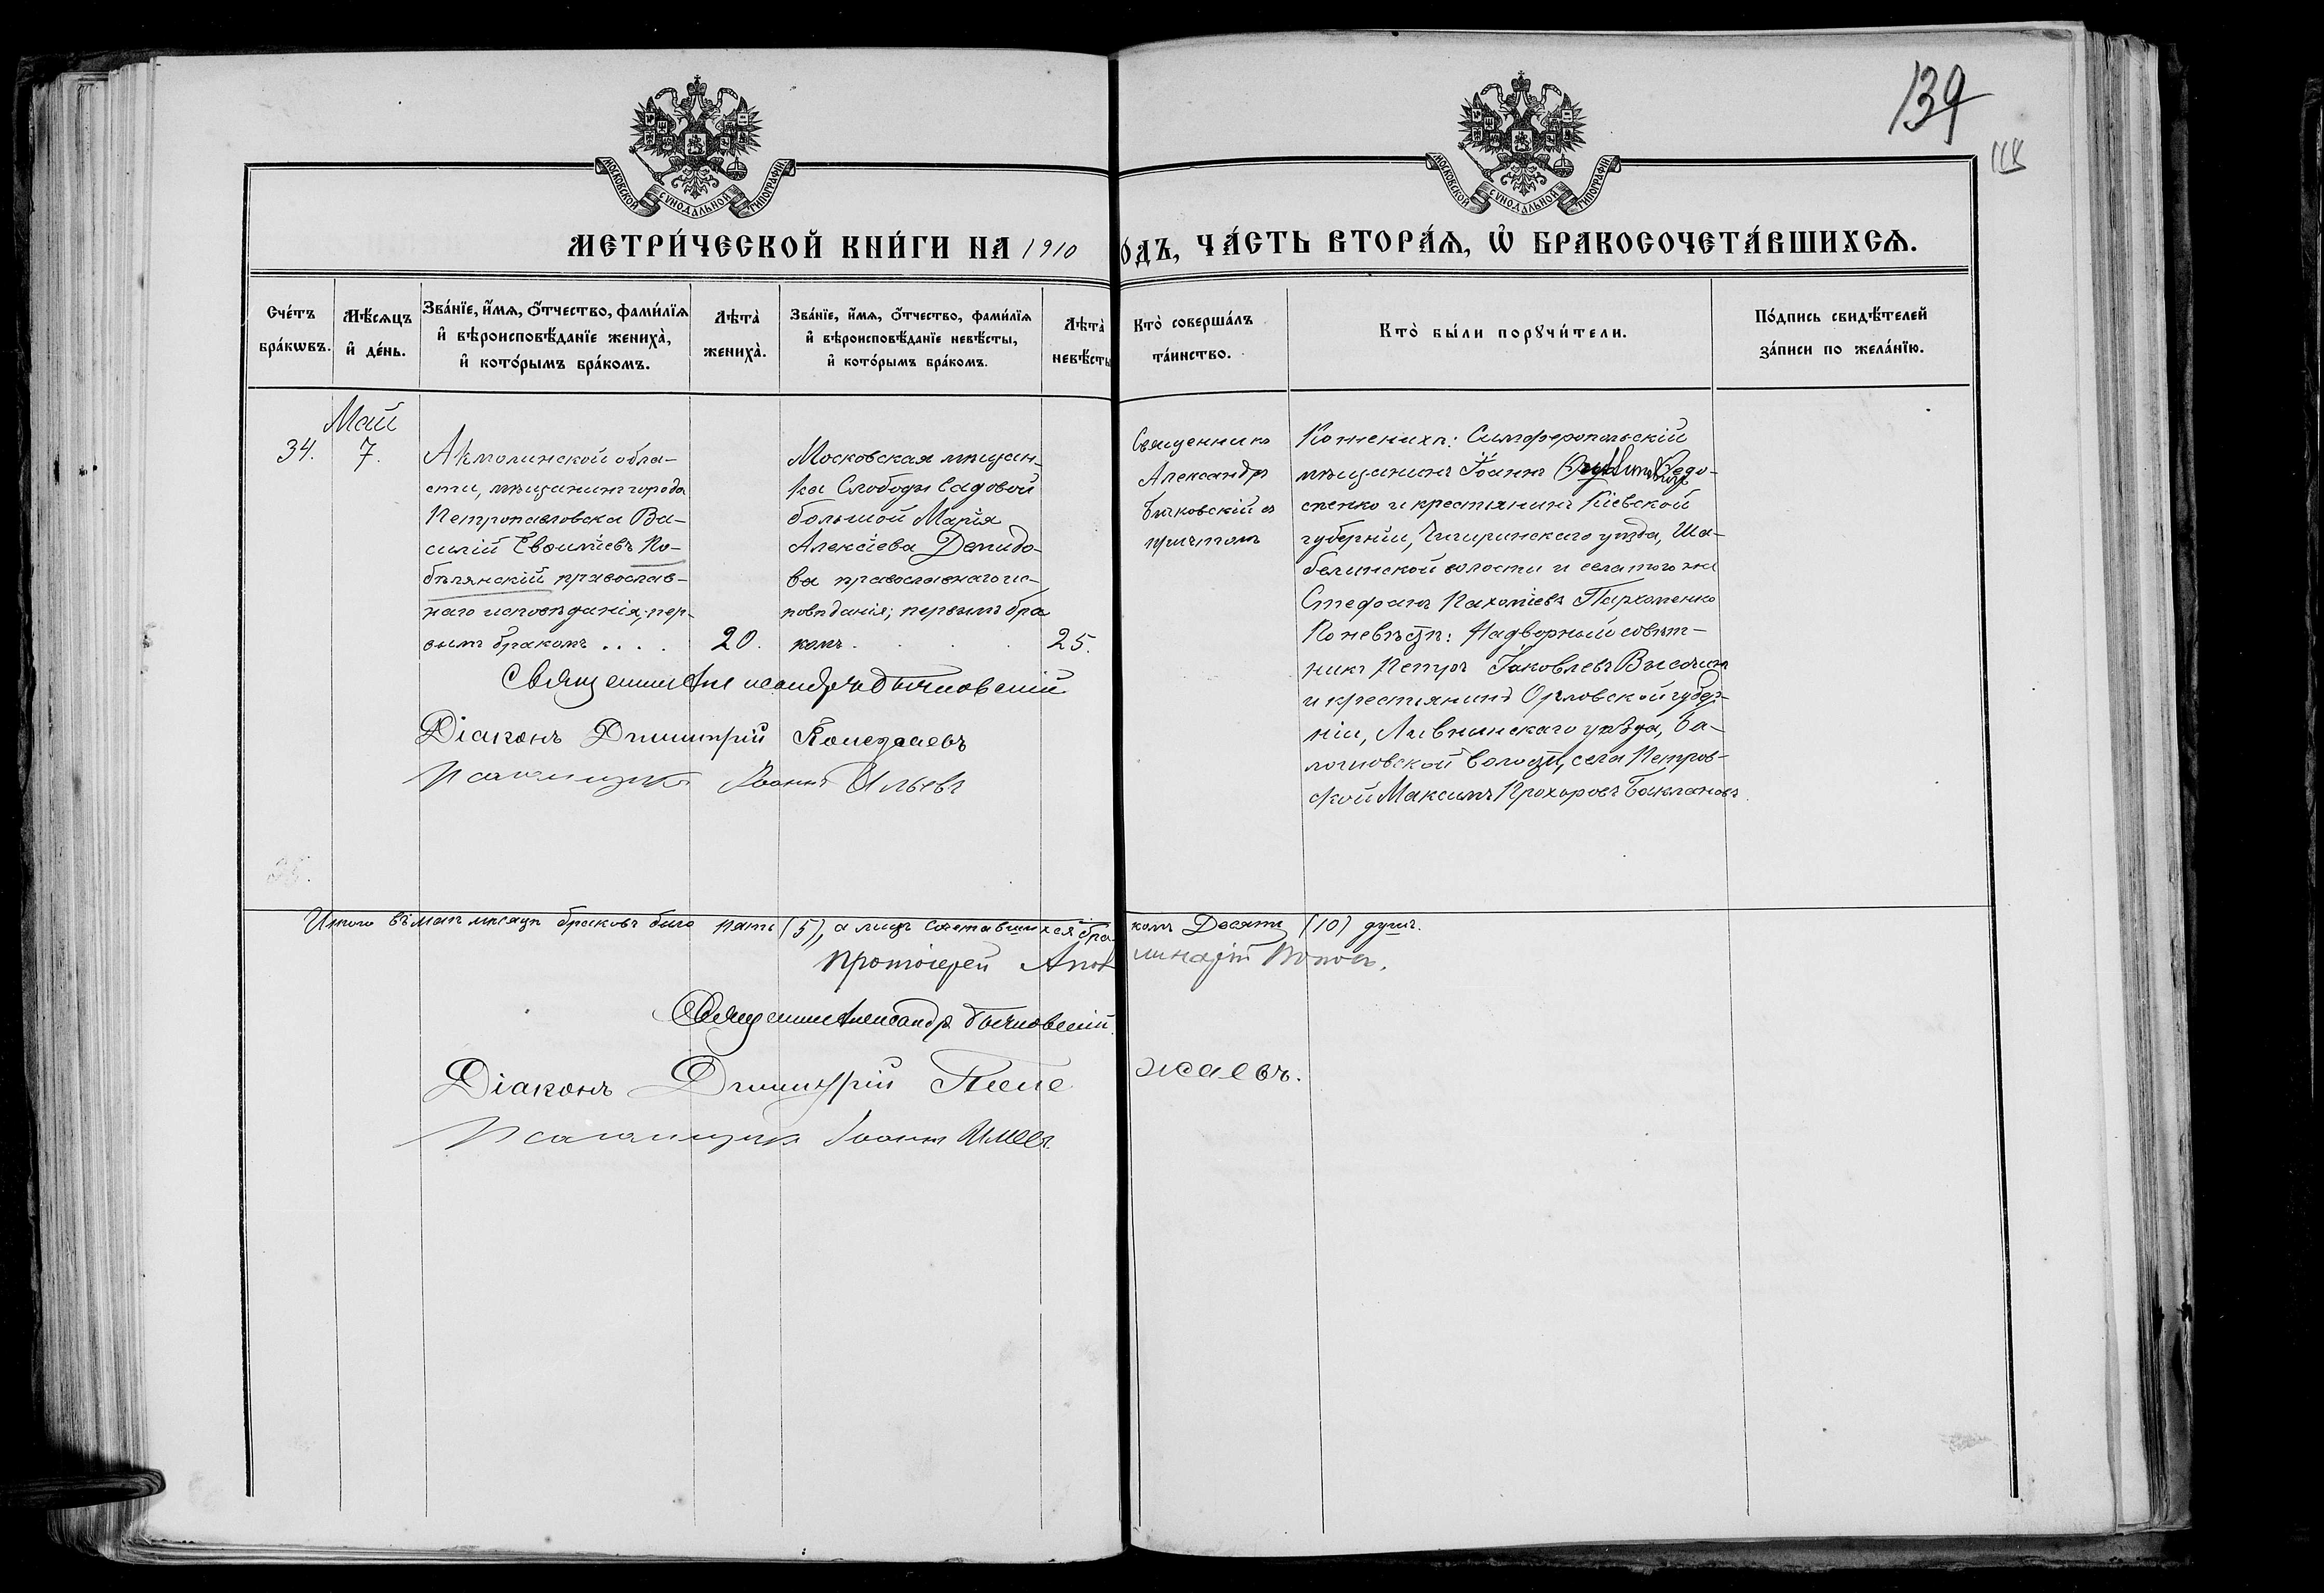 139
118
МОСКОВСКОЙ СѴНОДАЛЬНОЙ ТИПОГРАФІИ
МОСКОВСКОЙ СѴНОДАЛЬНОЙ ТИПОГРАФІИ
МЕТРИ́ЧЕСКОЙ КНИ́ГИ НА 1910 ОДЪ, ЧА́СТЬ ВТОРА́Ѧ, Ѡ҆ БРАКОСОЧЕТА́ВШИХСѦ.
Сче́тъ бра́кѡвъ.
Мѣ́сѧцъ и҆ де́нь.
Зва́нїе, и҆́мѧ, ѻ҆́тчество, фами́лїѧ и҆ вѣроисповѣ́данїе жениха̀, и҆ кото́рымъ бра́комъ.
Лѣта̀ жениха̀.
Зва́нїе, и҆́мѧ, ѻ҆́тчество, фами́лїѧ и҆ вѣроисповѣ́данїе невѣ́сты, и҆ кото́рымъ бра́комъ.
Лѣта̀ невѣ́сты
Кто̀ соверша́лъ та́инство.
Кто̀ бы́ли порꙋчи́тели.
По́дпись свидѣ́телей за́писи по жела́нїю.
Май
34. 7.
Акмолинской обла-
сти, мѣщанинъ города
Петропавловска Ва-
силій Евѳиміевъ Ко-
бѣлянскій православ-
наго исповѣданія, пер-
вымъ бракомъ . . . . 20.
Московская мѣщан-
ка Слободы Садовой
большой Марія
Алексіева Демидо-
ва православнаго ис-
повѣданія; первымъ бра
комъ. 25.
Священникъ
Александръ
Бычковскій съ
причтомъ
По женихѣ: Симферопольскій
мѣщанинъ Іоаннъ Федо-
сенко и крестьянинъ Кіевской
губерніи, Чигиринскаго уѣзда, Ша-
белинской волости и села того же
Стефанъ Пахоміевъ Пархоменко
По невѣстѣ: Надворный совѣт-
никъ Петръ Іаковлевъ Высочин
и крестьянинъ Орловской губер-
ніи, Ливнинскаго уѣзда,
волости, села Петров-
ской Максимъ Прохоровъ Баклановъ.
Священникъ Александръ Бычковскій
Діаконъ Димитрій
Псаломщикъ Іоаннъ Ильевъ
Итого въ маѣ мѣсяцѣ браковъ было пять (5), а лицъ сочетавшихся бра- комъ Десять (10) душъ.
Протоіерей Аполлинарій Поповъ.
Священникъ Александръ Бычковскій.
Діаконъ Димитрій жаевъ.
Псаломщикъ Іоаннъ Ильевъ